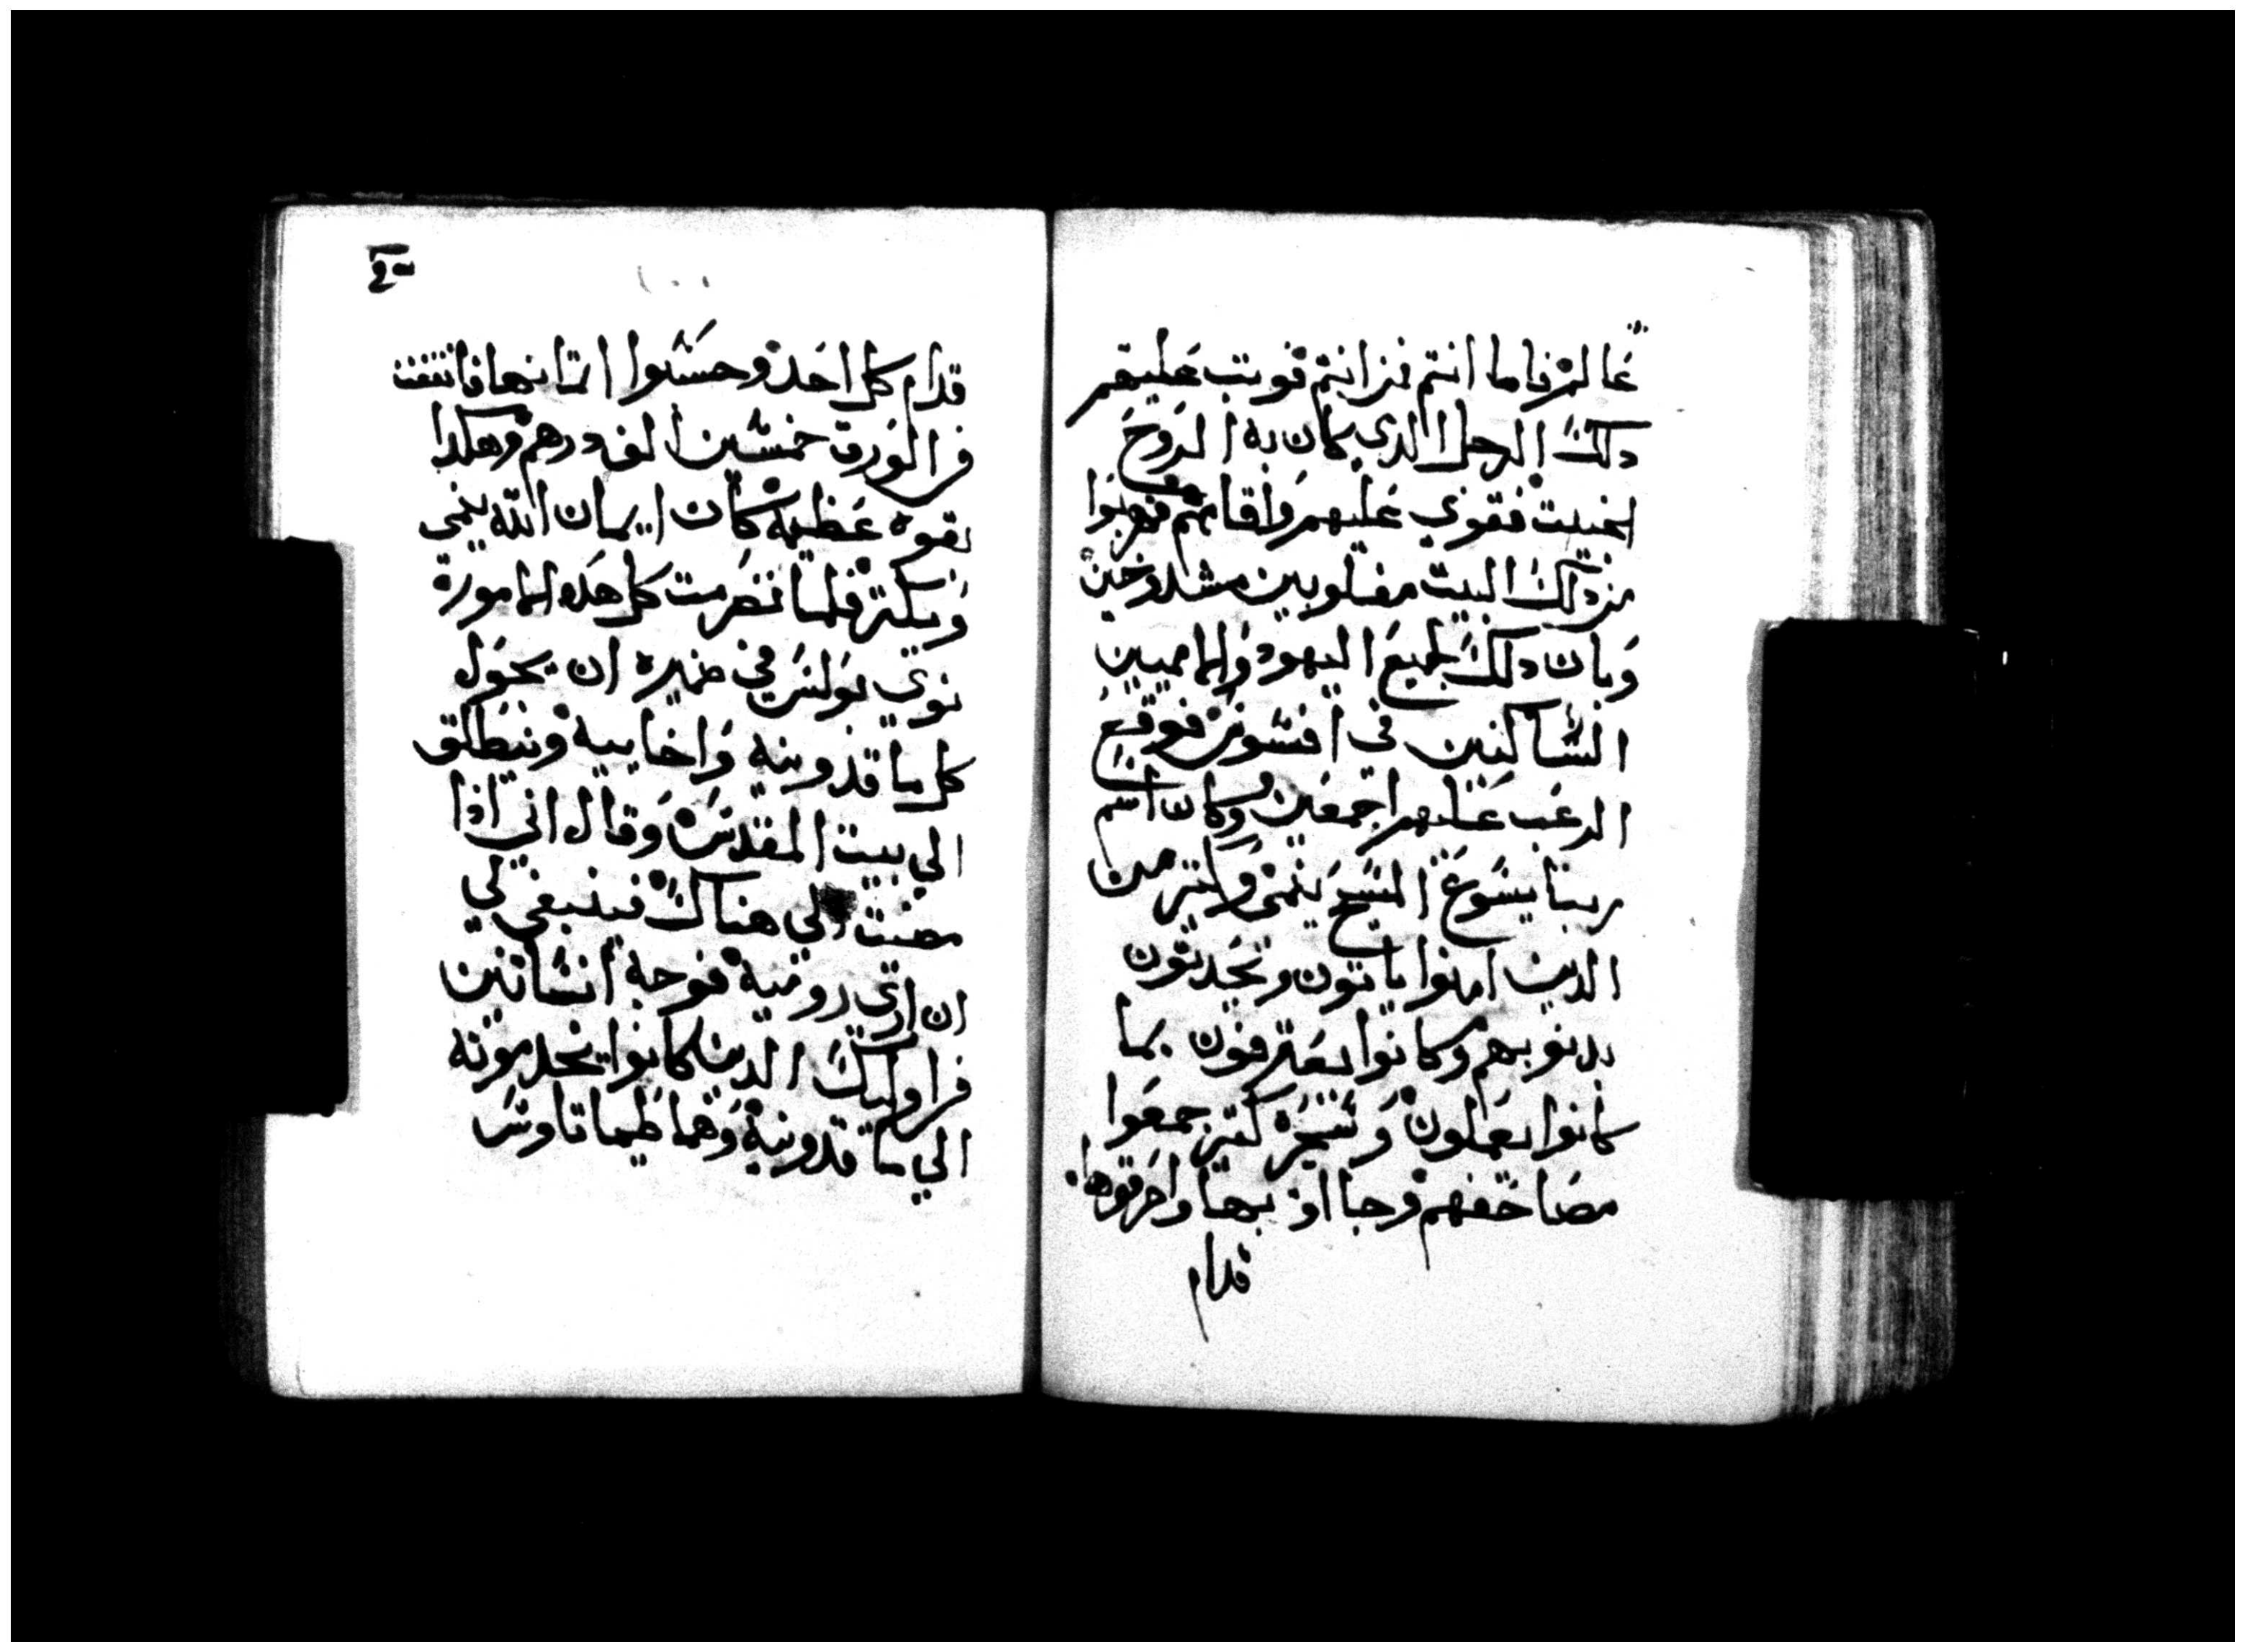 عالم فاما انتم فمن انتم فوتب عليهم
دلك الرجل الدي كان به الروح
الخبيت فقوي عليهم واقامهم فهربوا
من دلك البيت مغلوبين مشدوخين
وبان دلك لجميع اليهود والاميين
الساكنين في افسوس فوقع
الرعب عليهم اجمعين وكان اسم
ربنا يسوع المسيح ينمي وكتير من
الدين امنوا ياتون ويحدتون
بدنوبهم وكانوا يعترفون بما
كانوا يعملون وسحره كتير جمعوا
مصاحفهم وجااوا بها واحرقوها
قدام
قدام كل احد وحسبوا اتمانها فاتفقت
من الورق خمسين الف درهم وهكدا
بقوه عظيمه كان ايمان الله ينمي
ويكتر فلما تصرمت كل هده المامورة
نوي بولس في ضميره ان يحول
كل ماقدونيه واخاييه وينطلق
الي بيت المقدس وقال اني اذا
مضيت الي هناك فينبغي لي
ان اري روميه فوجه انسانين
من اوليك الدين كانوا يخدمونه
الي ماقدونية وهما طيماتاوس